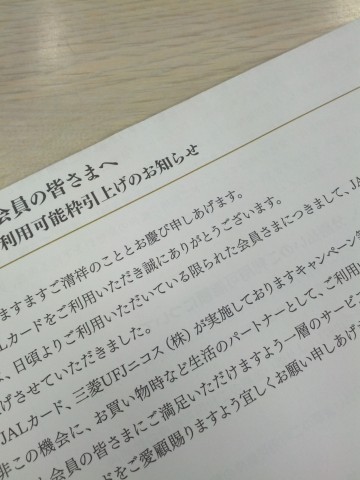 会員の皆さまへ
利用可能枠引上げのお知らせ
ますますご清祥のこととお慶び申しあげます。
ALカードをご利用いただき誠にありがとうございます。
、日頃よりご利用いただいている限られた会員さまにつきまして、JA
げさせていただきました。
JALカード、三菱UFJニコス（株）が実施しておりますキャンペーン等
非この機会に、お買い物時など生活のパートナーとして、ご利用い
会員の皆さまにご満足いただけますよう一層のサービス
ドをご愛顧賜りますよう宜しくお願い申しあげ